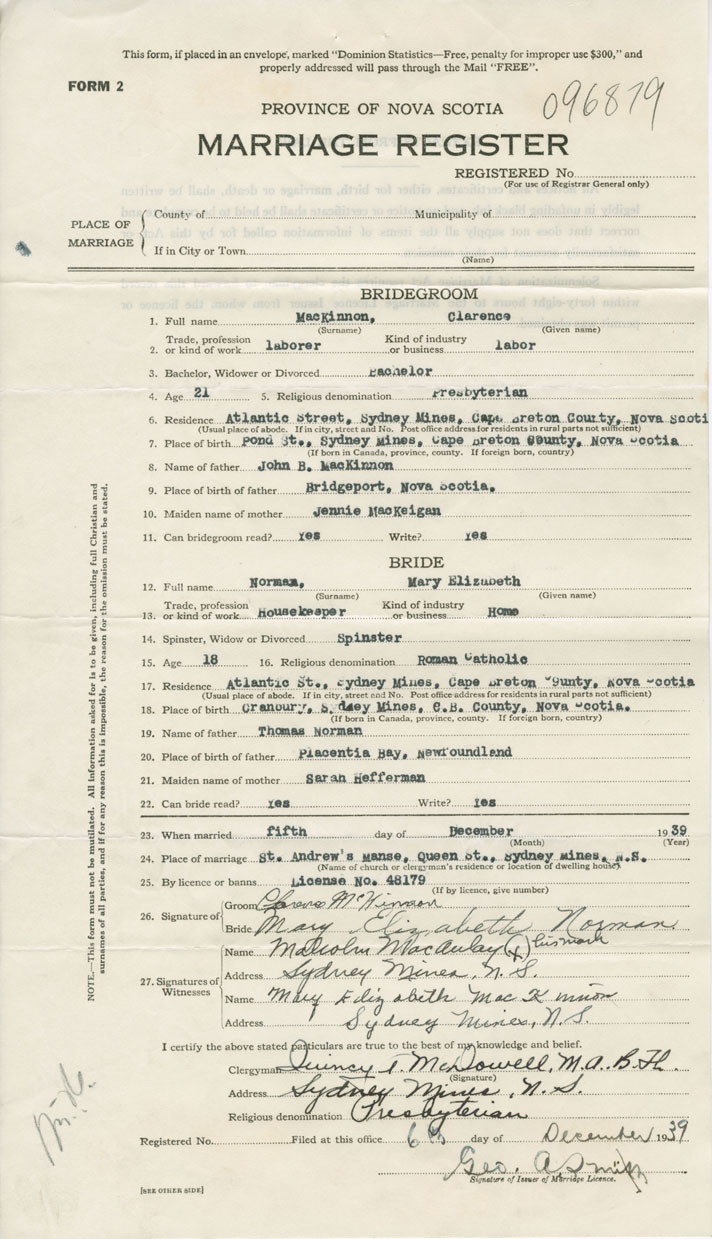 This form, if placed in an envelope, marked "Dominion Statistics—Free, penalty for improper use $300," and
properly addressed will pass through the Mail "FREE".
FORM 2
096879
PROVINCE OF NOVA SCOTIA
MARRIAGE REGISTER
REGISTERED No.
(For use of Registrar General only)
PLACE OF MARRIAGE
County of Municipality of
If in City or Town
(Name)
BRIDEGROOM
1. Full name MacKinnon, Clarence
(Surname) (Given name)
2. Trade, profession or kind of work laborer Kind of industry or business labor
3. Bachelor, Widower or Divorced Bachelor
4. Age 21 5. Religious denomination Presbyterian
6. Residence Atlantic Street, Sydney Mines, Cape Breton County, Nova Scoti
(Usual place of abode. If in city, street and No. Post office address for residents in rural parts not sufficient)
7. Place of birth Pond St., Sydney Mines, Cape Breton County, Nova Scotia
(If born in Canada, province, county. If foreign born, country)
8. Name of father John B. MacKinnon
9. Place of birth of father Bridgeport, Nova Scotia.
10. Maiden name of mother Jennie MacKeigan
11. Can bridegroom read? Yes Write? Yes
BRIDE
12. Full name Norman, Mary Elizabeth
(Surname) (Given name)
13. Trade, profession or kind of work Housekeeper Kind of industry or business Home
14. Spinster, Widow or Divorced Spinster
15. Age 18 16. Religious denomination Roman Catholic
17. Residence Atlantic St., Sydney Mines, Cape Breton County, Nova Scotia
(Usual place of abode. If in city, street and No. Post office address for residents in rural parts not sufficient)
18. Place of birth Cranbury, Sydney Mines, C.B. County, Nova Scotia.
(If born in Canada, province, county. If foreign born, country)
19. Name of father Thomas Norman
20. Place of birth of father Placentia Bay, Newfoundland
21. Maiden name of mother Sarah Hefferman
22. Can bride read? Yes Write? Yes
23. When married fifth day of December 1939
(Month) (Year)
24. Place of marriage St. Andrew's Manse, Queen St., Sydney Mines, N.S.
(Name of church or clergyman's residence or location of dwelling house)
25. By licence or banns License No. 48179
(If by licence, give number)
26. Signature of
Groom Clarence McKinnon
Bride Mary Elizabeth Norman
27. Signatures of Witnesses
Name Malcolm MacAulay (X) his mark
Address Sydney Mines, N.S.
Name Mary Elizabeth MacKinnon
Address Sydney Mines, N.S.
I certify the above stated particulars are true to the best of my knowledge and belief.
Clergyman Quincy T. McDowell, M.A. B.Th.
(Signature)
Address Sydney Mines, N.S.
Religious denomination Presbyterian
Registered No. Filed at this office 6th day of December 1939
Geo. A. Smith
Signature of Issuer of Marriage Licence.
[SEE OTHER SIDE]
NOTE.—This form must not be mutilated. All information asked for is to be given, including full Christian and
surnames of all parties, and if for any reason this is impossible, the reason for the omission must be stated.